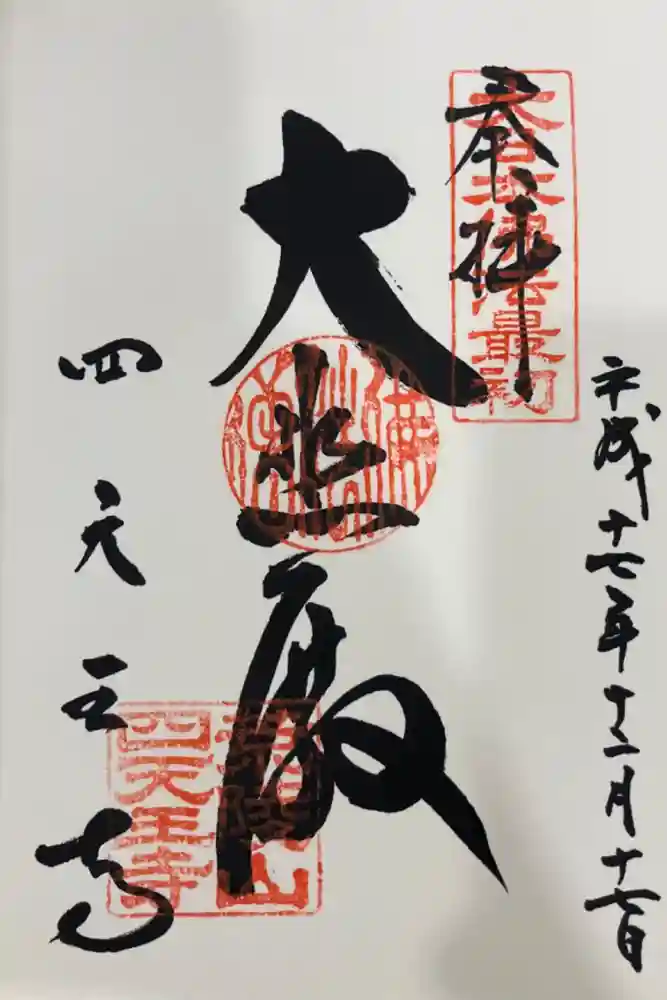 奉拝
大日本佛法最初
平成十七年十二月十七日
大悲殿
荒陵山
四天王寺
四天王寺